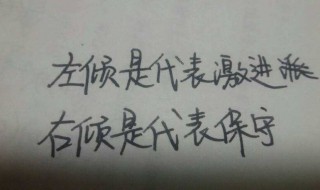 左倾是代表激进派
右倾是代表保守